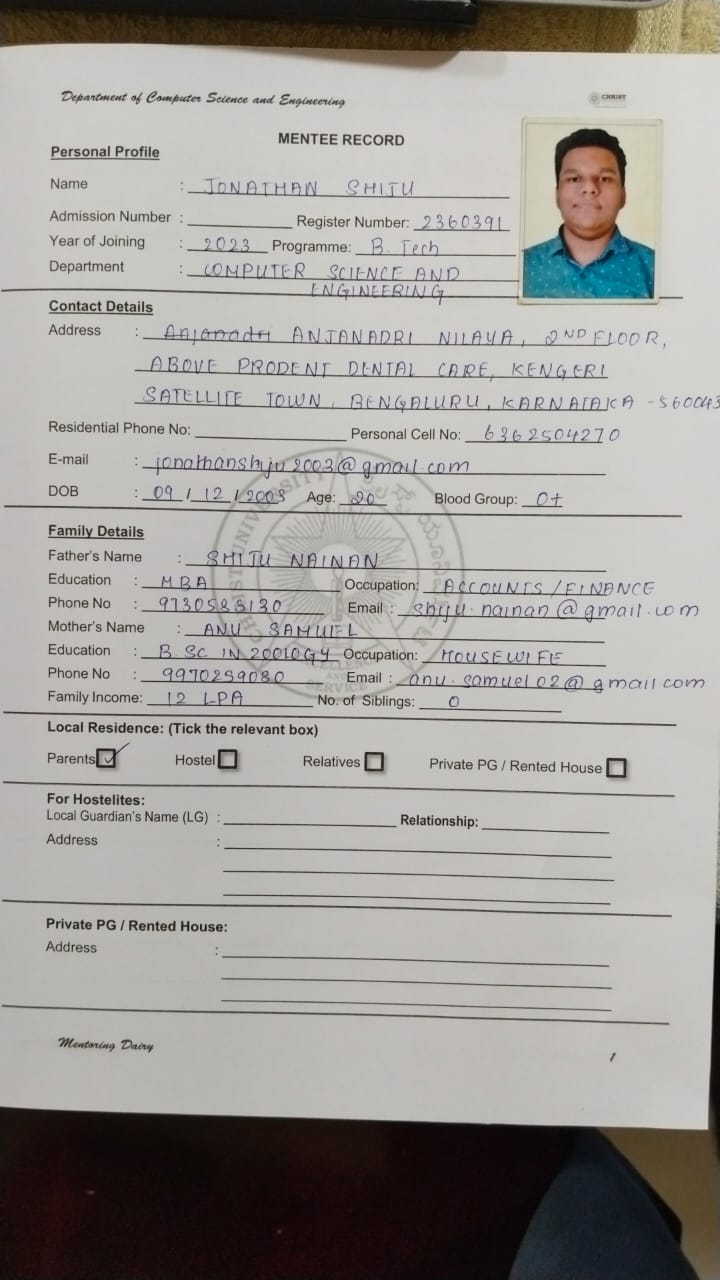 Department of Computer Science and Engineering
CHRIST
MENTEE RECORD
Personal Profile
Name : JONATHAN SHIJU
Admission Number : Register Number: 2360391
Year of Joining : 2023 Programme: B. Tech
Department : COMPUTER SCIENCE AND
ENGINEERING
Contact Details
Address : Anjanadri ANJANADRI NILAYA, 2ND FLOOR,
ABOVE PRODENT DENTAL CARE, KENGERI
SATELLITE TOWN, BENGALURU, KARNATAKA -560043
Residential Phone No: Personal Cell No: 6362504270
E-mail : jonathanshiju2003@gmail.com
DOB : 09 / 12 / 2003 Age: 20 Blood Group: O+
Family Details
Father's Name : SHIJU NAINAN
Education : MBA Occupation: ACCOUNTS/FINANCE
Phone No : 9730583130 Email : shiju.nainan@gmail.com
Mother's Name : ANU SAMUEL
Education : B.SC IN ZOOLOGY Occupation: HOUSEWIFE
Phone No : 9970259080 Email : anu.samuel02@gmail.com
Family Income: 12 LPA No. of Siblings: 0
Local Residence: (Tick the relevant box)
Parents Hostel Relatives Private PG / Rented House
For Hostelites:
Local Guardian's Name (LG) : Relationship:
Address :
Private PG / Rented House:
Address :
Mentoring Dairy
1